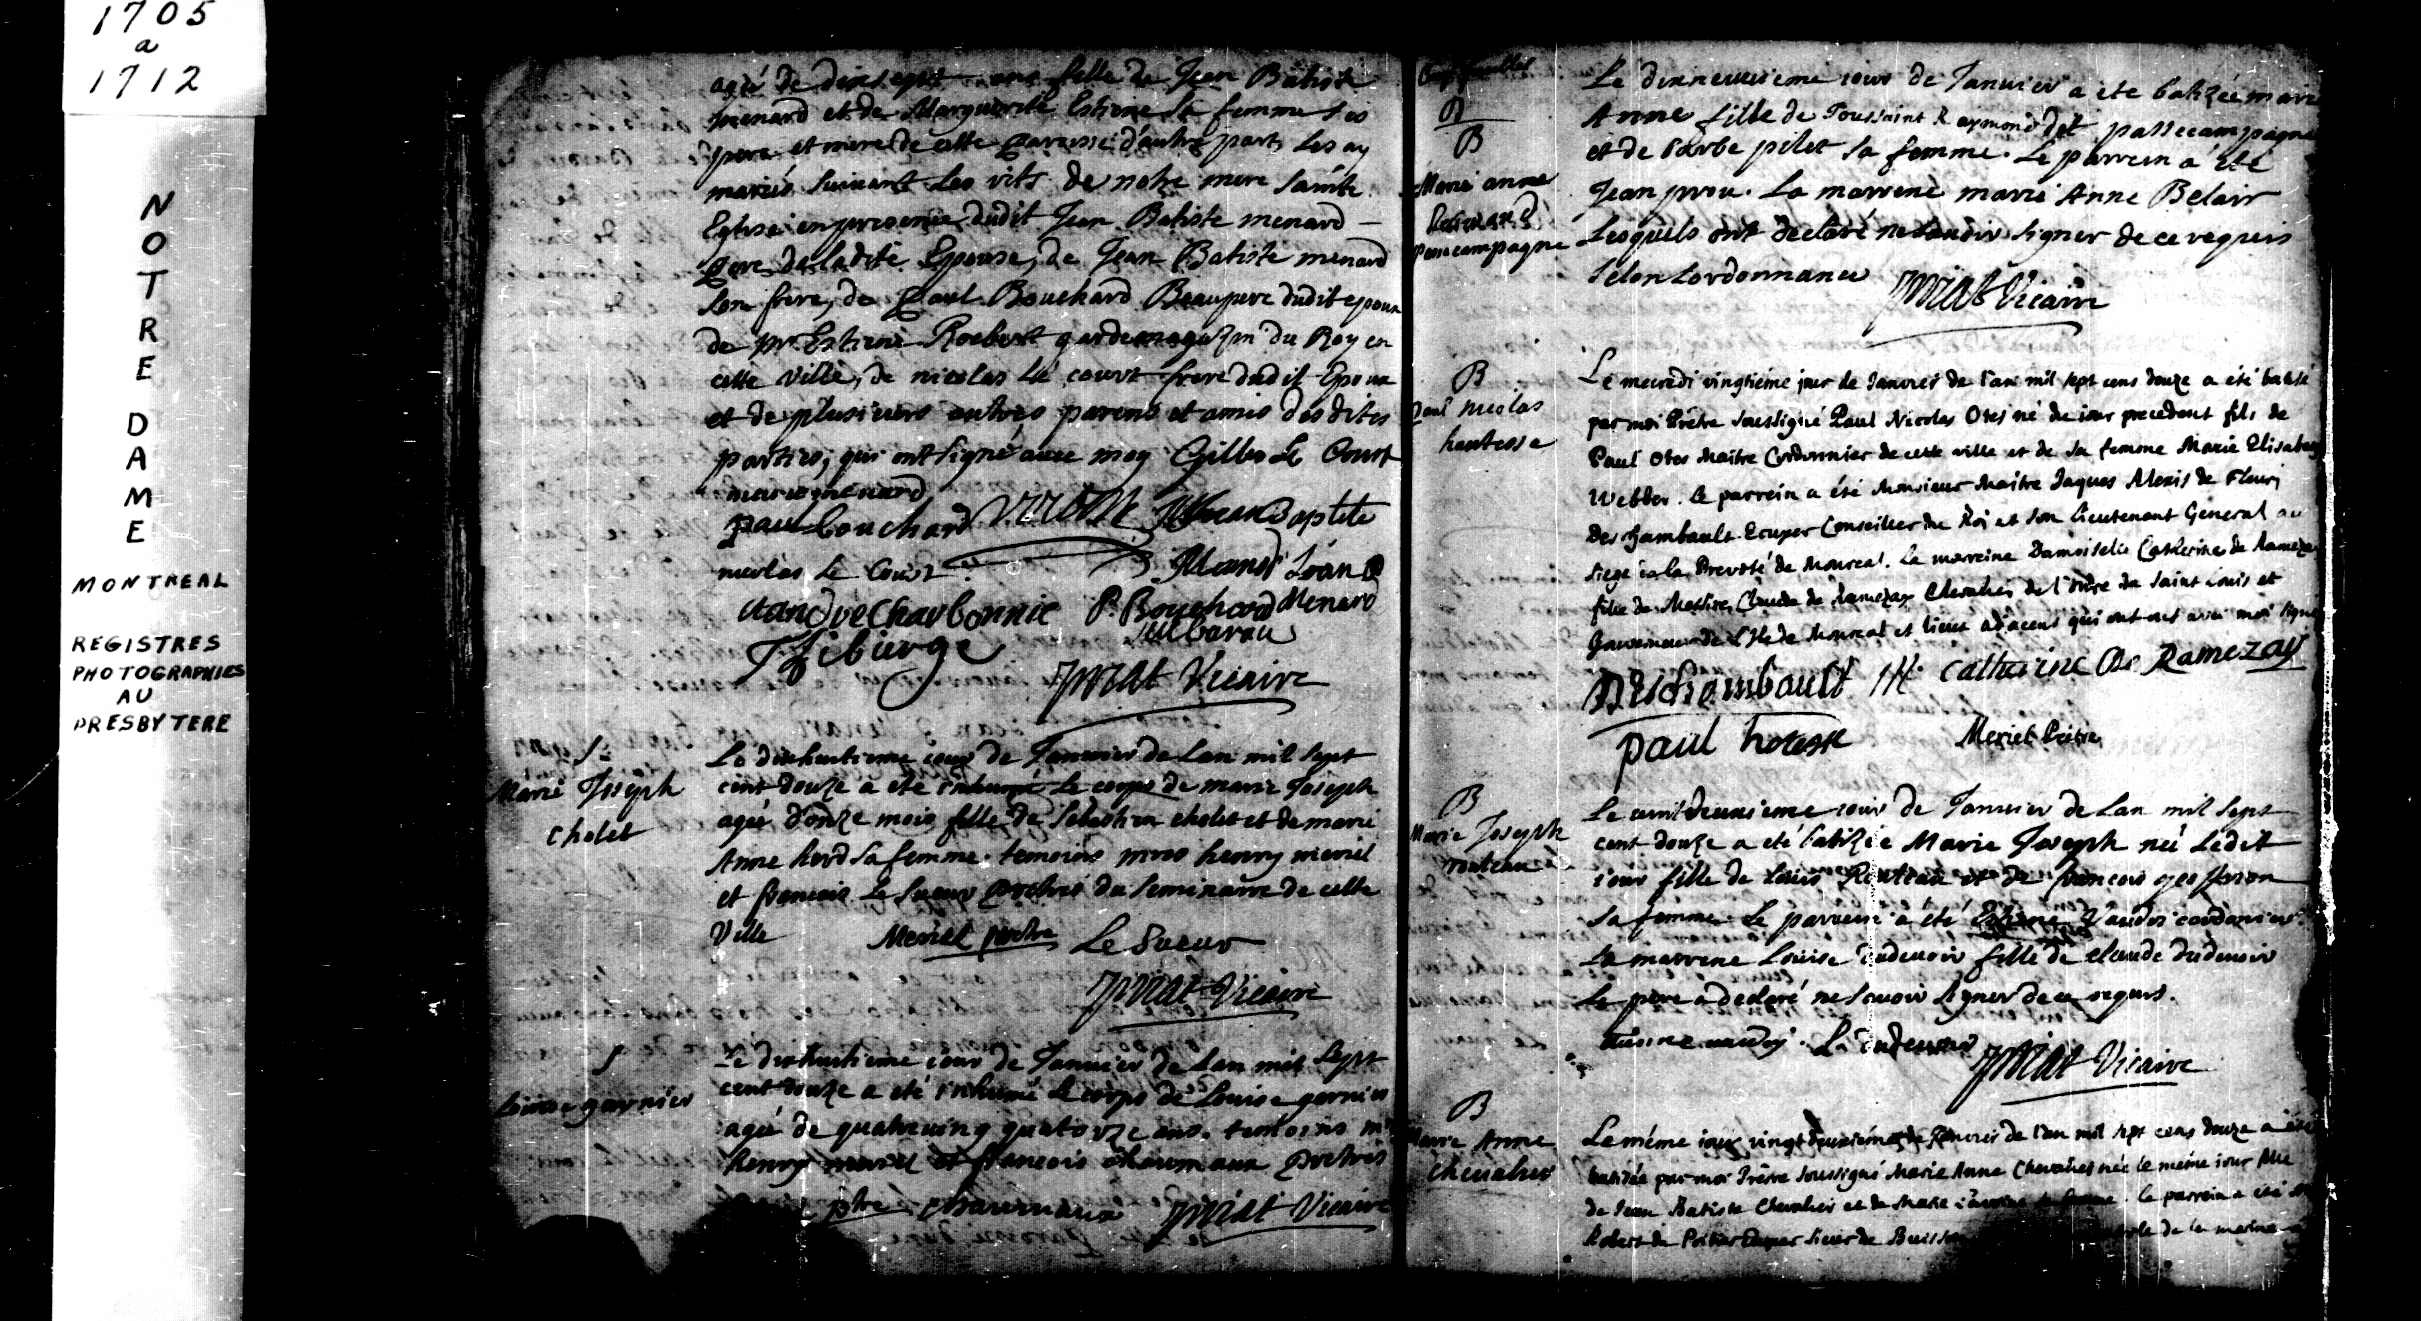 1705
a
1712
NOTRE DAME
MONTREAL
REGISTRES
PHOTOGRAPHIES
AU
PRESBYTERE
agée de dix sept ans fille de Jean Batiste
menard et de Marguerite Estiene sa femme ses
pere et mere de cette paroisse d'autre part, Les ay
mariés suivant Les rits de notre mere sainte
Eglise en presence dudit Jean Batiste menard
pere de ladite Epouse, de Jean Batiste menard
son frere, de Paul Bouchard Beaupere dudit epoux
de mr Estiene Roebert garde magazin du Roy en
cette ville, de nicolas Le court frere dudit Epoux
et de plusieurs autres parens et amis desdites
parties, qui ont signé avec moy Gilles Le Court
marie menard
paul bouchard Jean Baptiste
nicolas Le Court Menard
andre Charbonnie P. Bouchard Menard
Thiburge
Priat Vicaire
S
Marie Joseph
Cholet
Le dixhuitieme jour de Janvier de Lan mil sept
cent douze a eté inhumé Le corps de marie Joseph
agée d'onze mois fille de Sebastien cholet et de marie
Anne hard sa femme. temoins mrs henry meriel
et francois Le Sueur prestres du seminaire de cette
Ville
Meriel prestre Le Sueur
Priat Vicaire
S
Louise garnier
Le dixhuitieme jour de Janvier de Lan mil sept
cent douze a eté inhumé Le corps de Louise garnier
agée de quatrevingt quatorze ans. temoins mrs
henry meriel et francois chaumaux prestres
ptre Chaumaux Priat Vicaire
B
B
Marie anne
Raimand
Passecampagne
Le dixneuvieme jour de Janvier a eté batizée marie
Anne fille de Toussaint Raymond dit passecampagne
et de barbe pilet sa femme. Le parrein a été
Jean prou. La marrene marie Anne Belair
Lesquels ont declaré ne savoir signer de ce requis
selon Lordonnance
Priat Vicaire
B
Paul nicolas
hautesse
Le mecredi vingtiéme jour de Janvier de l'an mil sept cens douze a été batisé
par moi Prêtre soussigné Paul Nicolas Otes né de jour precedent fils de
Paul Otes Maitre Cordonnier de cette ville et de sa femme Marie Elisabeth
Webber. Le parrein a été Monsieur Maitre Jaques Alexis de Fleuri
Deschambault Ecuyer Conseiller du Roi et son Lieutenant General au
siege de la Prevoté de Monreal. La marreine Damoiselle Catherine de Ramezay
fille de Messire Claude de Ramezay Chevalier de l'ordre de Saint Louis et
Gouverneur de l'Ile de Monreal et lieux adjacens qui ont avec moi signé
Deschambault M. Catherine De Ramezay
paul hotesse Meriel Prêtre
B
Marie Joseph
routeau
Le vint deuxieme jour de Janvier de Lan mil sept
cent douze a eté batizée Marie Joseph née Ledit
jour fille de Louis Routeau et de francois geoffrion
sa femme. Le parrein a été Estiene Vaudri cordonnier
La marrene Louise dudevoir fille de claude dudevoir
Le pere a declaré ne savoir signer de ce requis.
L. dudevoir Priat Vicaire
B
Marie Anne
chevalier
Le méme jour vingt deuxiéme de Janvier de l'an mil sept cens douze a été
batisée par moi Prêtre soussigné Marie Anne Chevalier née le même jour fille
de Jean Batiste Chevalier et de Marie sa femme. Le parrein a été
Robert de Poitier Ecuyer Sieur de Buisson de la marine